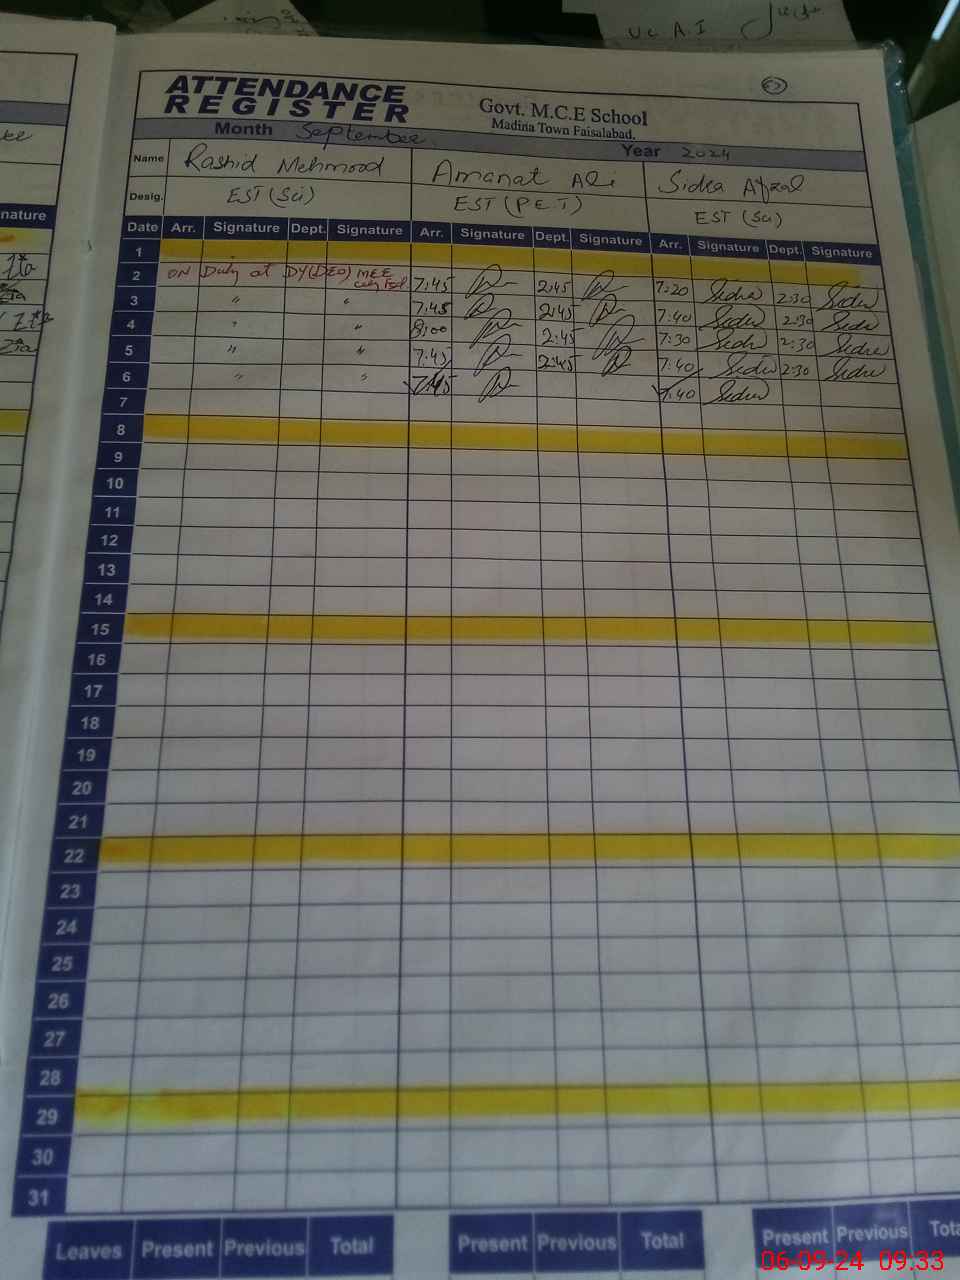 Uc A.I
ATTENDANCE
REGISTER
Govt. M.C.E School
Madina Town Faisalabad.
Month September
Year 2024
Name Rashid Mehmood Amanat Ali Sidra Afzal
Desig. EST (Sci) EST (P.E.T) EST (Sci)
nature
Date Arr. Signature Dept. Signature Arr. Signature Dept. Signature Arr. Signature Dept. Signature
1
2 ON Duty at DY(DEO) M.E.E 7:45 2:45 7:20 Sidra 2:30 Sidra
3 " " 7:45 2:45 7:40 Sidra 2:30 Sidra
4 " " 8:00 2:45 7:30 Sidra 2:30 Sidra
5 " " 7:45 2:45 7:40 Sidra 2:30 Sidra
6 " " 7:45 7:40 Sidra
7
8
9
10
11
12
13
14
15
16
17
18
19
20
21
22
23
24
25
26
27
28
29
30
31
Leaves Present Previous Total Present Previous Total Present Previous Tota
06-09-24 09:33